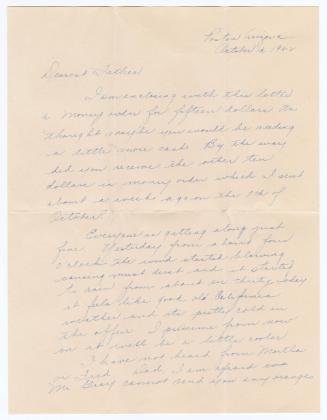 Poston Arizona
October 1942
Dearest Father:
I am enclosing with this letter
a money order for fifteen dollars. We
thought maybe you would be needing
a little more cash. By the way
did you receive the other ten
dollars in money order which I sent
about a week ago on the 9th of
October?
Everyone is getting along just
fine. Yesterday from about four
o'clock the wind started blowing
causing much dust and it started
to rain from about six thirty. Today
it feels like good old California
weather and its pretty cold in
the office. I presume from now
on it will be a little cooler.
I have not heard from Martha
or Fred. Dad, I am afraid
Mr. Gray cannot send you any oranges